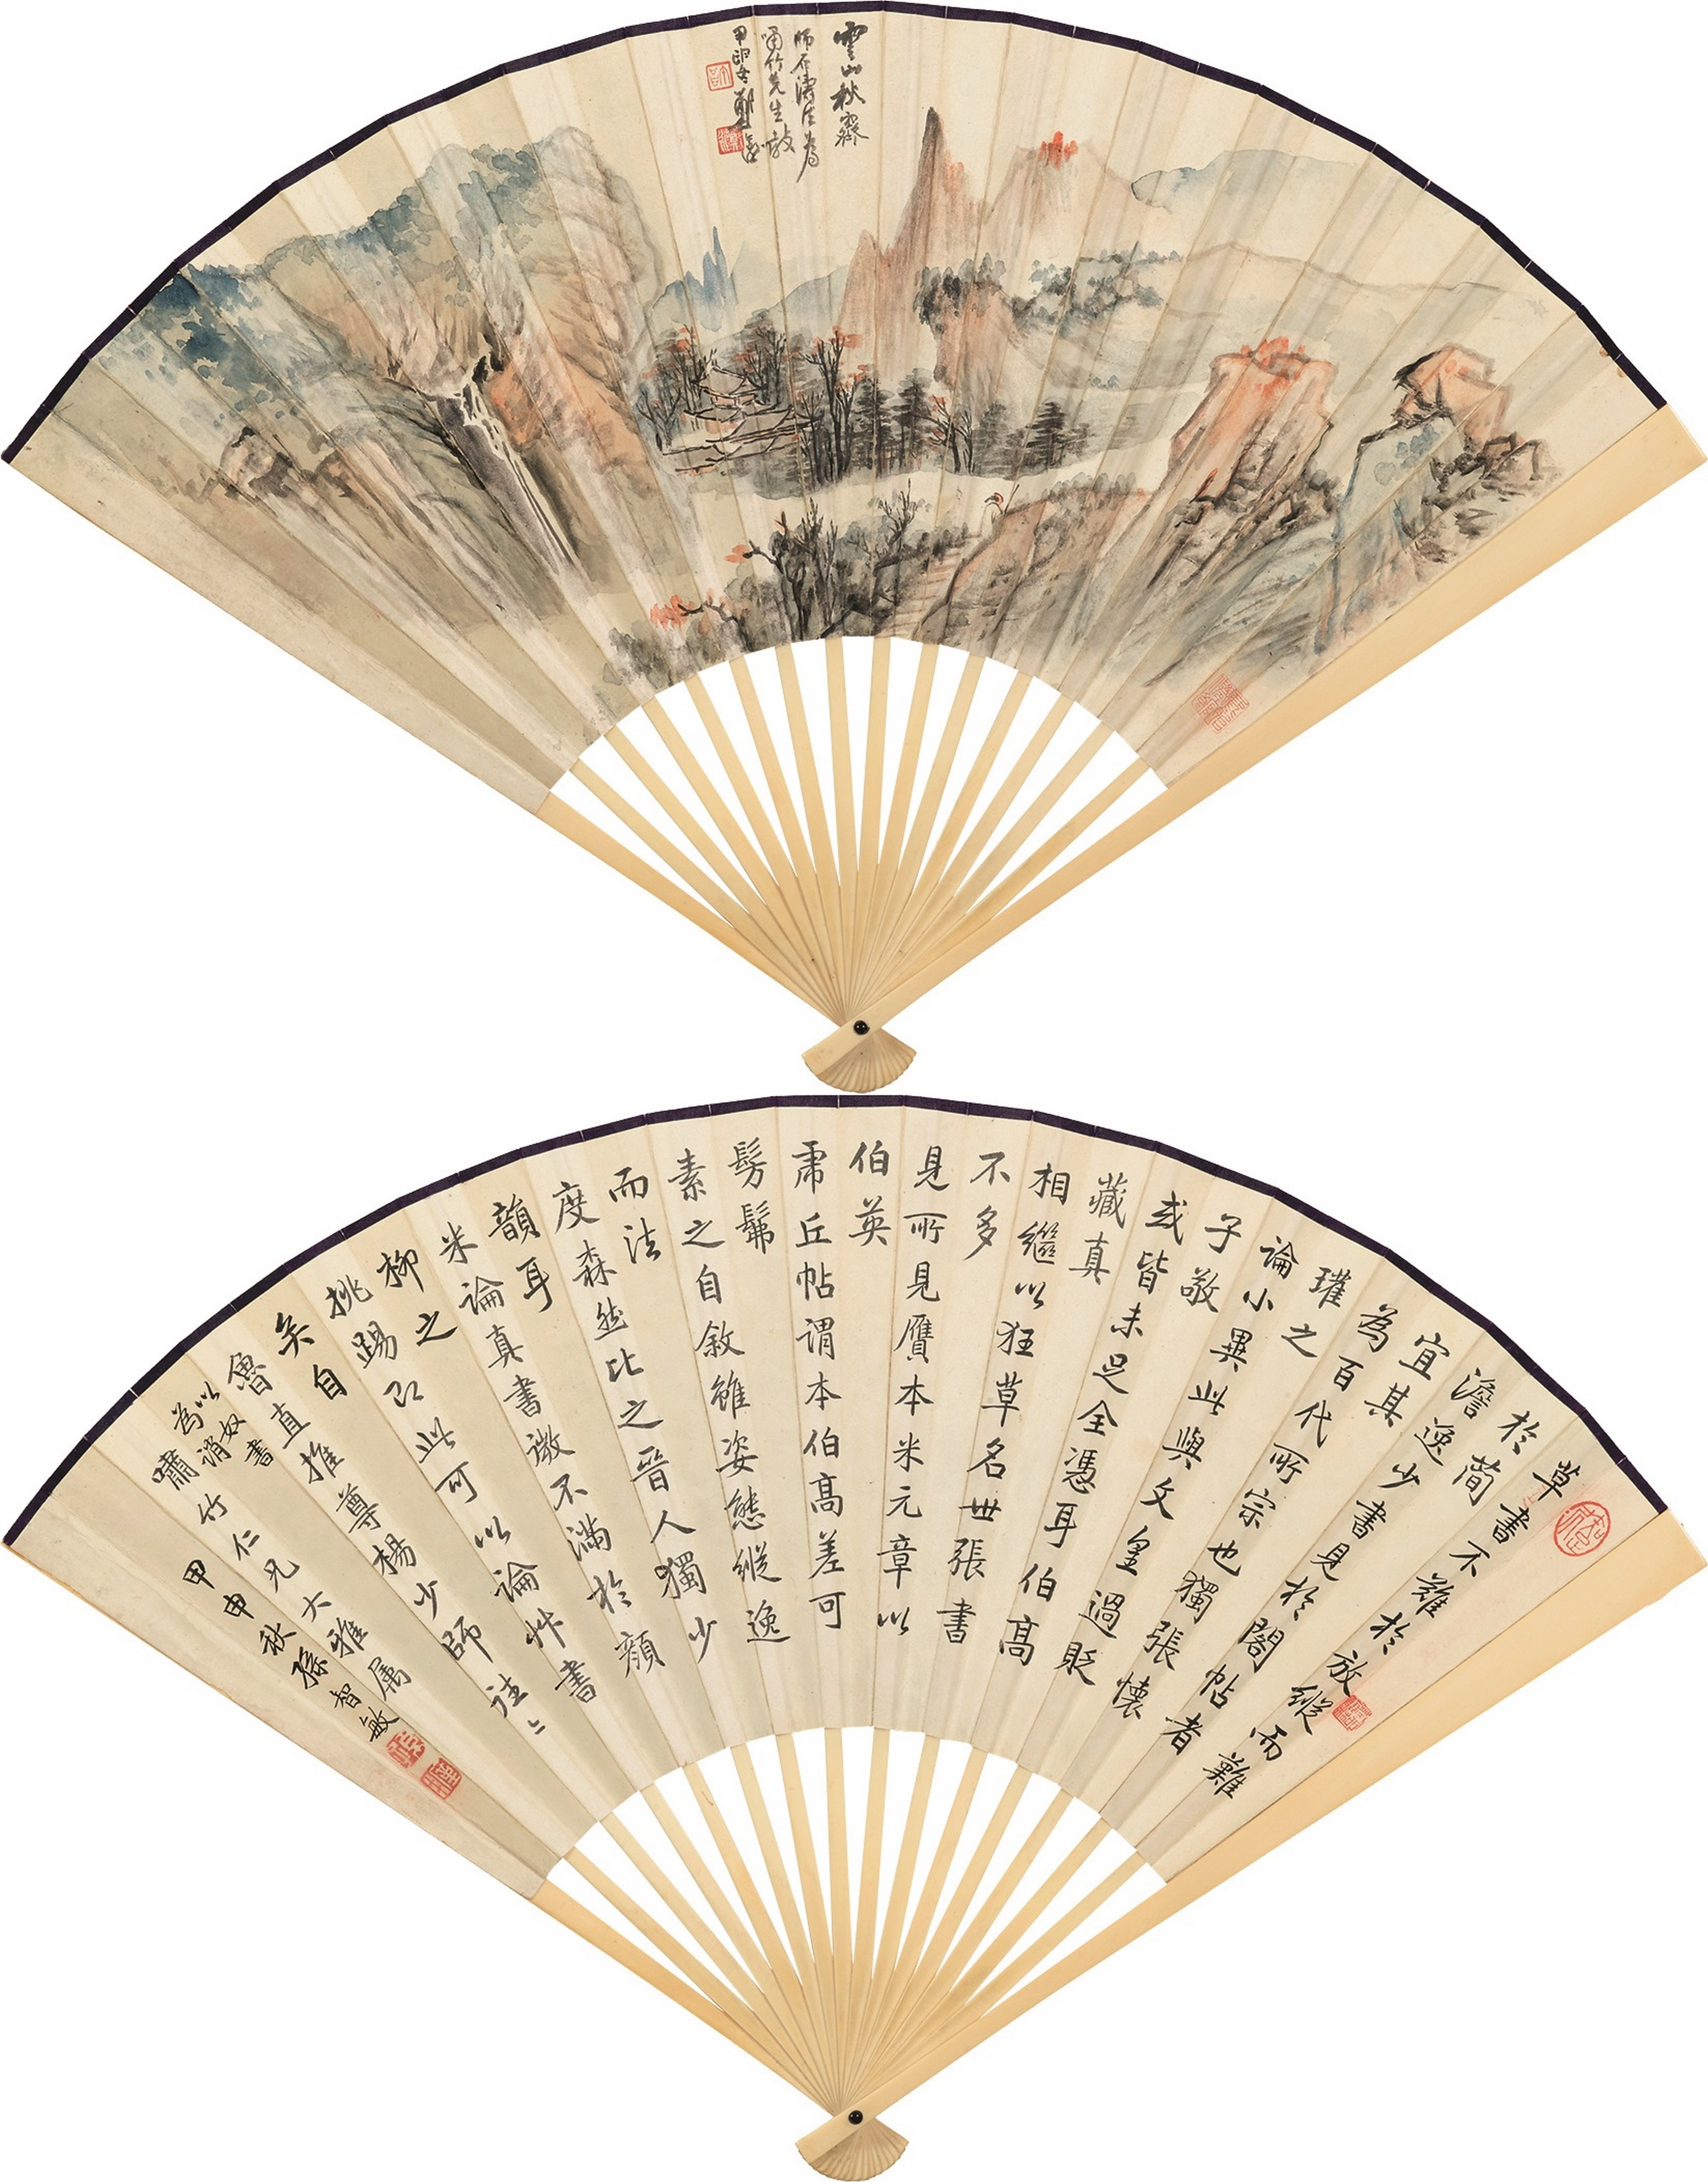 雲山秋霽
師石濤法為
嘯竹先生教
甲申冬鄭
草書不難於放縱而難
於簡
澹逸少書見於閣帖者
宜其
為百代所宗也獨張懷
瓘之
論小異此與文皇過貶
子敬
或皆未足全憑耳伯高
藏真
相繼以狂草名世張書
不多
見所見贋本米元章以
伯英
虎丘帖謂本伯高差可
髣髴
素之自敘雖姿態縱逸
而法
度森然比之晉人獨少
韻耳
米論真書微不滿於顏
柳之
挑踢即此可以論艸書
矣自
魯直推尊楊少師往〻
以奴書
為誚
嘯竹仁兄大雅属
甲申秋孫智敏